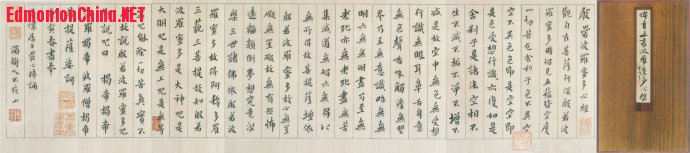 EdmontonChina.NET
般若波羅蜜多心經
觀自在菩薩行深般若波
羅蜜多時照見五蘊皆空度
一切苦厄舍利子色不異空
空不異色色即是空空即
是色受想行識亦復如是
舍利子是諸法空相不
生不滅不垢不淨不增不
減是故空中無色無受想
行識無眼耳鼻舌身意
無色聲香味觸法無眼
界乃至無意識界無無
明亦無無明盡乃至無
老死亦無老死盡無苦
集滅道無智亦無得以
無所得故菩提薩埵依
般若波羅蜜多故心無罣
礙無罣礙故無有恐怖
遠離顛倒夢想究竟涅
槃三世諸佛依般若波
羅蜜多故得阿耨多羅
三藐三菩提故知般若
波羅蜜多是大神咒是
大明咒是無上咒是
咒能除一切苦真實不
故說般若波羅蜜多咒
說咒曰 揭帝揭帝
羅揭帝 波羅僧揭帝
菩提薩婆訶
寅春書奉
持誦
EdmontonChina.NET